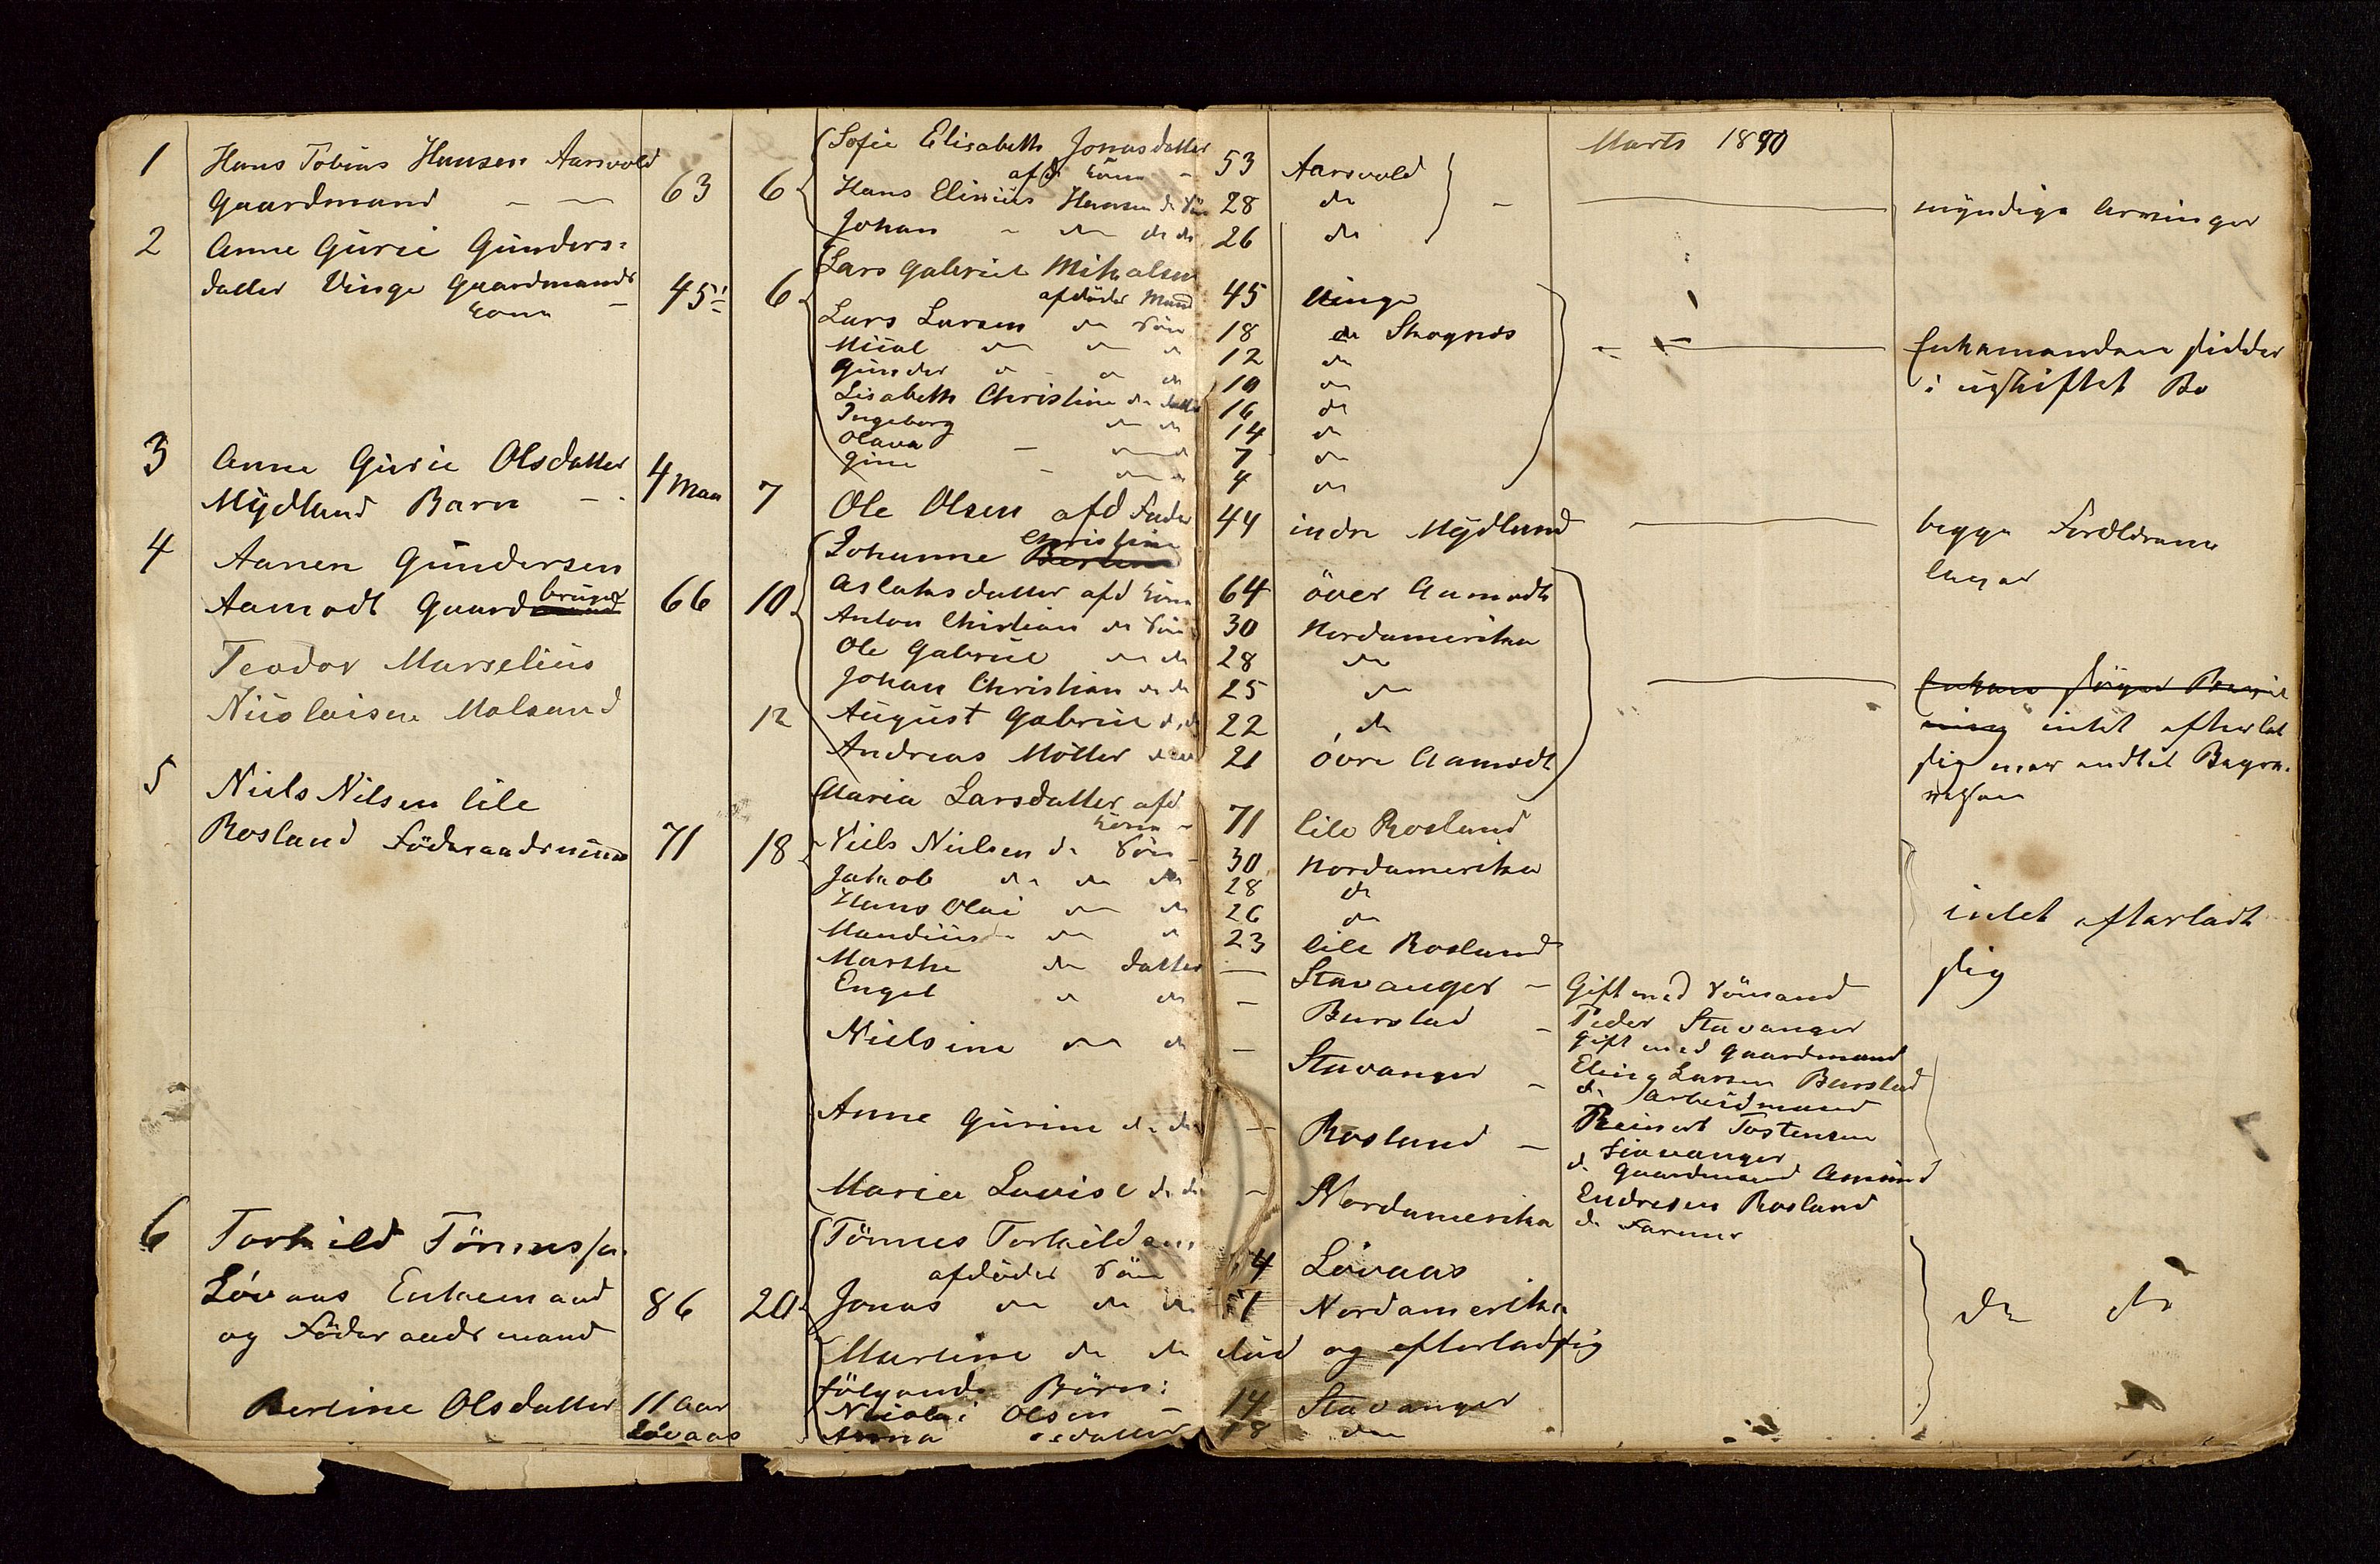 Marts 1890
1 Hans Tobias Hansen Aarsvold
Gaardmand 63 6
Sofie Elisabeth Jonasdatter
afd. Kone 53 Aarsvold
Hans Elinius Hansen do Søn 28 do
Johan do do do 26 do
myndige Arvinger
2 Anne Gurie Gunders-
datter Vinge Gaardmands
Kone 45 6
Lars Gabriel Mikalsen
afdøder Mand 45 Vinge
Lars Larsen do Søn 18 do Skognes
Mikal do do do 12 do
Gunder do do do 10 do
Lisabeth Christine do datter 16 do
Ingeborg do do 14 do
Olava do 7 do
Gine do 4 do
Enkemanden sidder
i uskiftet Bo
3 Anne Gurie Olsdatter
Mydland Barn 4 Maa 7
Ole Olsen afd Fader 44 indre Mydland
begge Forældrene
lever
4 Aanen Gundersen
Aamodt Gaardbruger 66 10
Johanne Christine
Aslaksdatter afd Kone 64 över Aamodt
Anton Christian do Søn 30 Nordamerika
Ole Gabriel do do 28 do
Johan Christian do do 25 do
August Gabriel do do 22 do
Andreas Möller do do 21 övre Aamodt
intet efterlat
sig
Teodor Marselius
Nicolaisen Malsand 12
5 Niels Nilsen lile
Rosland Föderaadsmand 71 18
Maria Larsdatter afd
Kone 71 lile Rosland
Niels Nielsen do Søn 30 Nordamerika
Jakob do do do 28 do
Hans Olai do do 26 do
Mandius do do do 23 lile Rosland
Marthe do datter — Stavanger –
Gift med Sömand
Peder Stavanger
Engel do do – Burstad –
Gift med Gaardmand
Eling Larsen Burstad
Nielsine do do – Stavanger –
do Arbeidmand
Reinert Tostensen
Stavanger
Anne Gurine do do – Rosland –
do Gaardmand Amund
Endresen Rosland
Maria Lovise do do – Nordamerika
do Farmer
intet efterladt
sig
6 Torkild Tönnes
Lövaas Enkemand
og Föderaadsmand 86 20
Tönnes Torkildsen
afdöder Sön 4 Lövaas
Jonas do do do 1 Nordamerika
Martine do do död og efterladt sig
fölgende Börn:
Nicolai Olsen – 14 Stavanger
Anna Olsdatter 18 do
do do
Berline Olsdatter 11 Aar
Lövaas